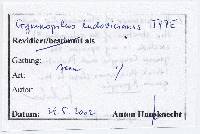 Gymnopilus ludovicianus TYPE
Revidiert/bestimmt als
Gattung:
Art:
Autor:
Datum: 24.5.2002 Anton Hausknecht